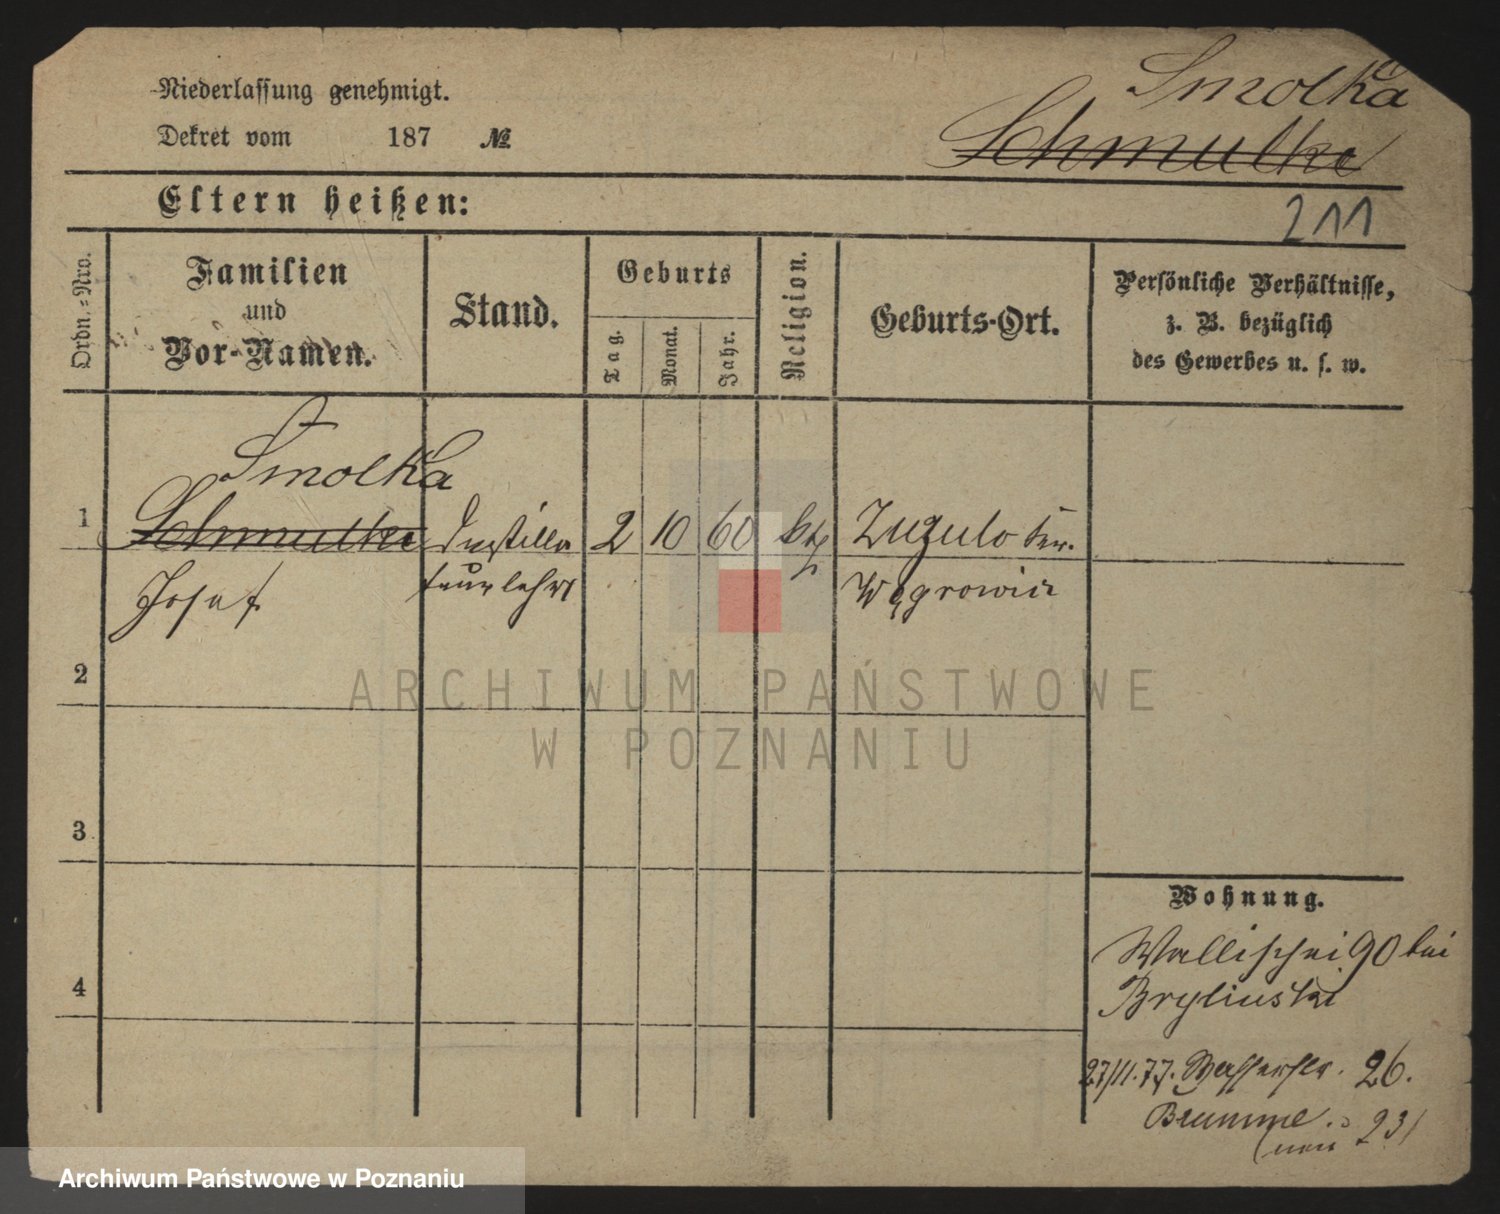 Niederlassung genehmigt.
Smolka
Dekret vom 187 №
Schmulke
Eltern heißen:
211
Ordn.-Nro.
Familien
und
Vor-Namen.
Stand.
Geburts
Tag.
Monat.
Jahr.
Religion.
Geburts-Ort.
Persönliche Verhältnisse,
z. B. bezüglich
des Gewerbes u. s. w.
Smolka
1 Schmulke Destilla 2 10 60 kth
Josef teurlehrl Wągrowiec
2
3
4
Wohnung.
Wallischei 90 bei
Brylinski
27/11.77. Wasserstr. 26.
Brumme.
(neu 23)
ARCHIWUM PAŃSTWOWE
W POZNANIU
Archiwum Państwowe w Poznaniu